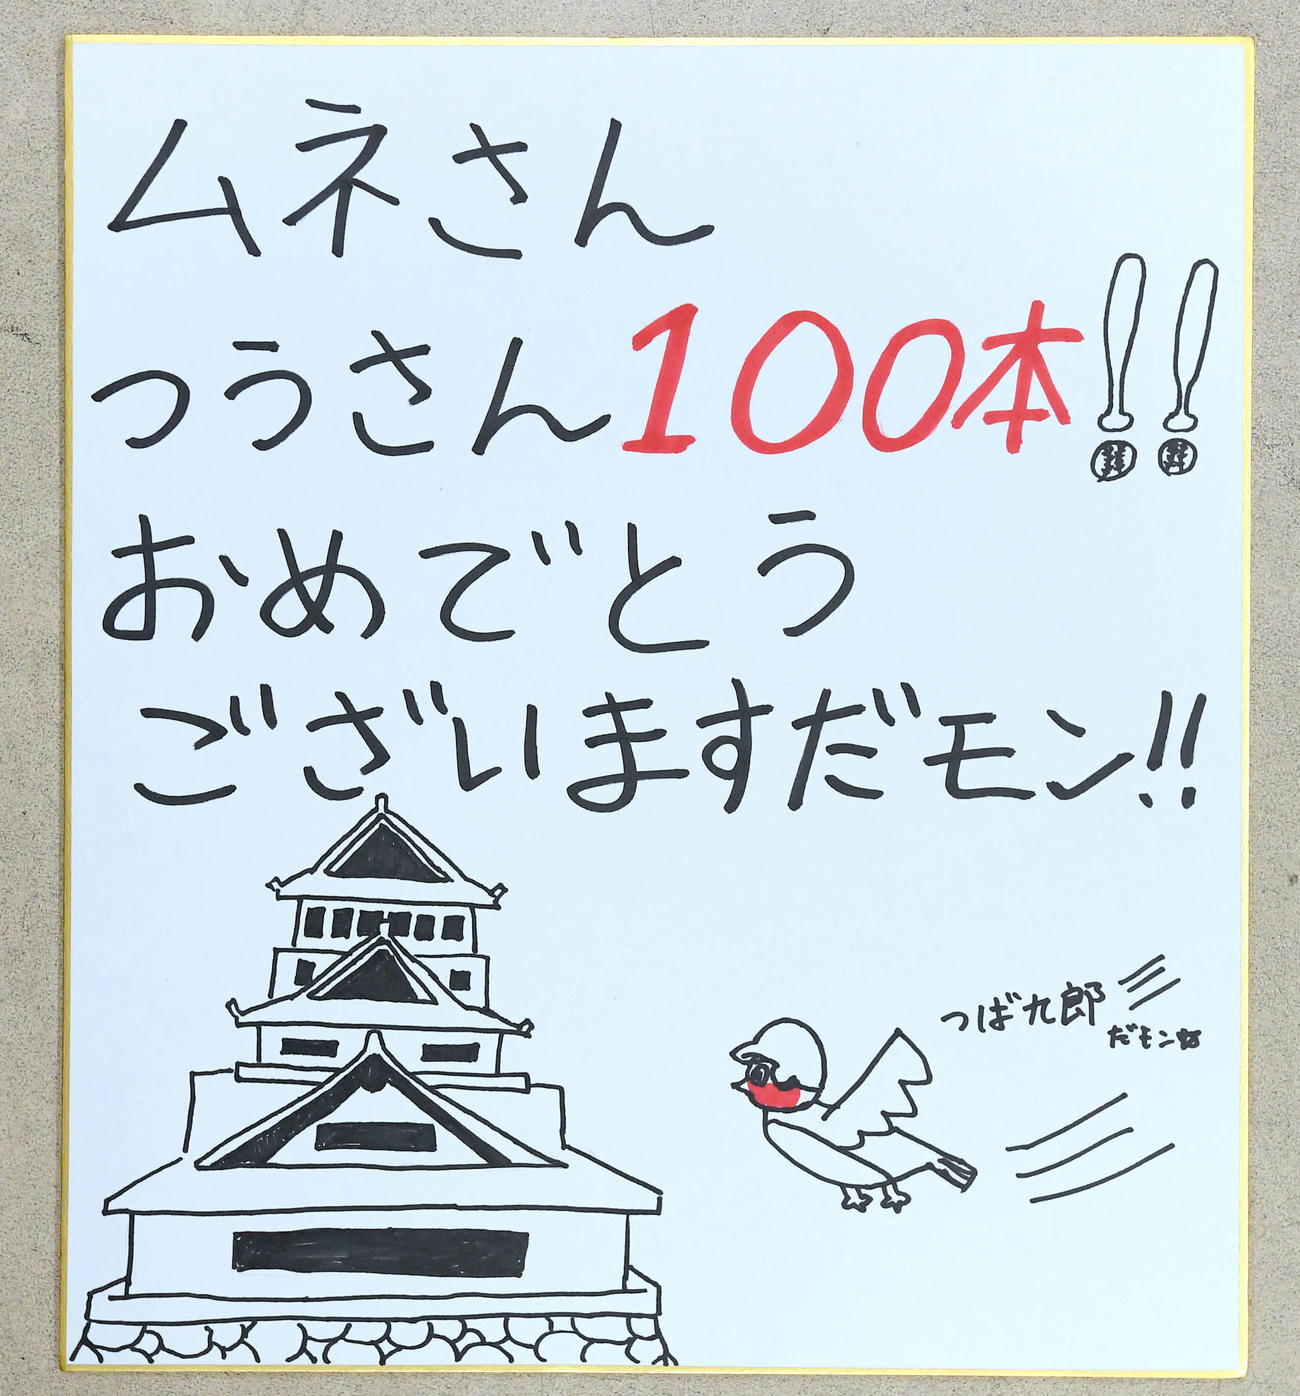 ムネさん
つうさん100本!!
おめでとう
ございますだモン!!
つば九郎
だモン☆